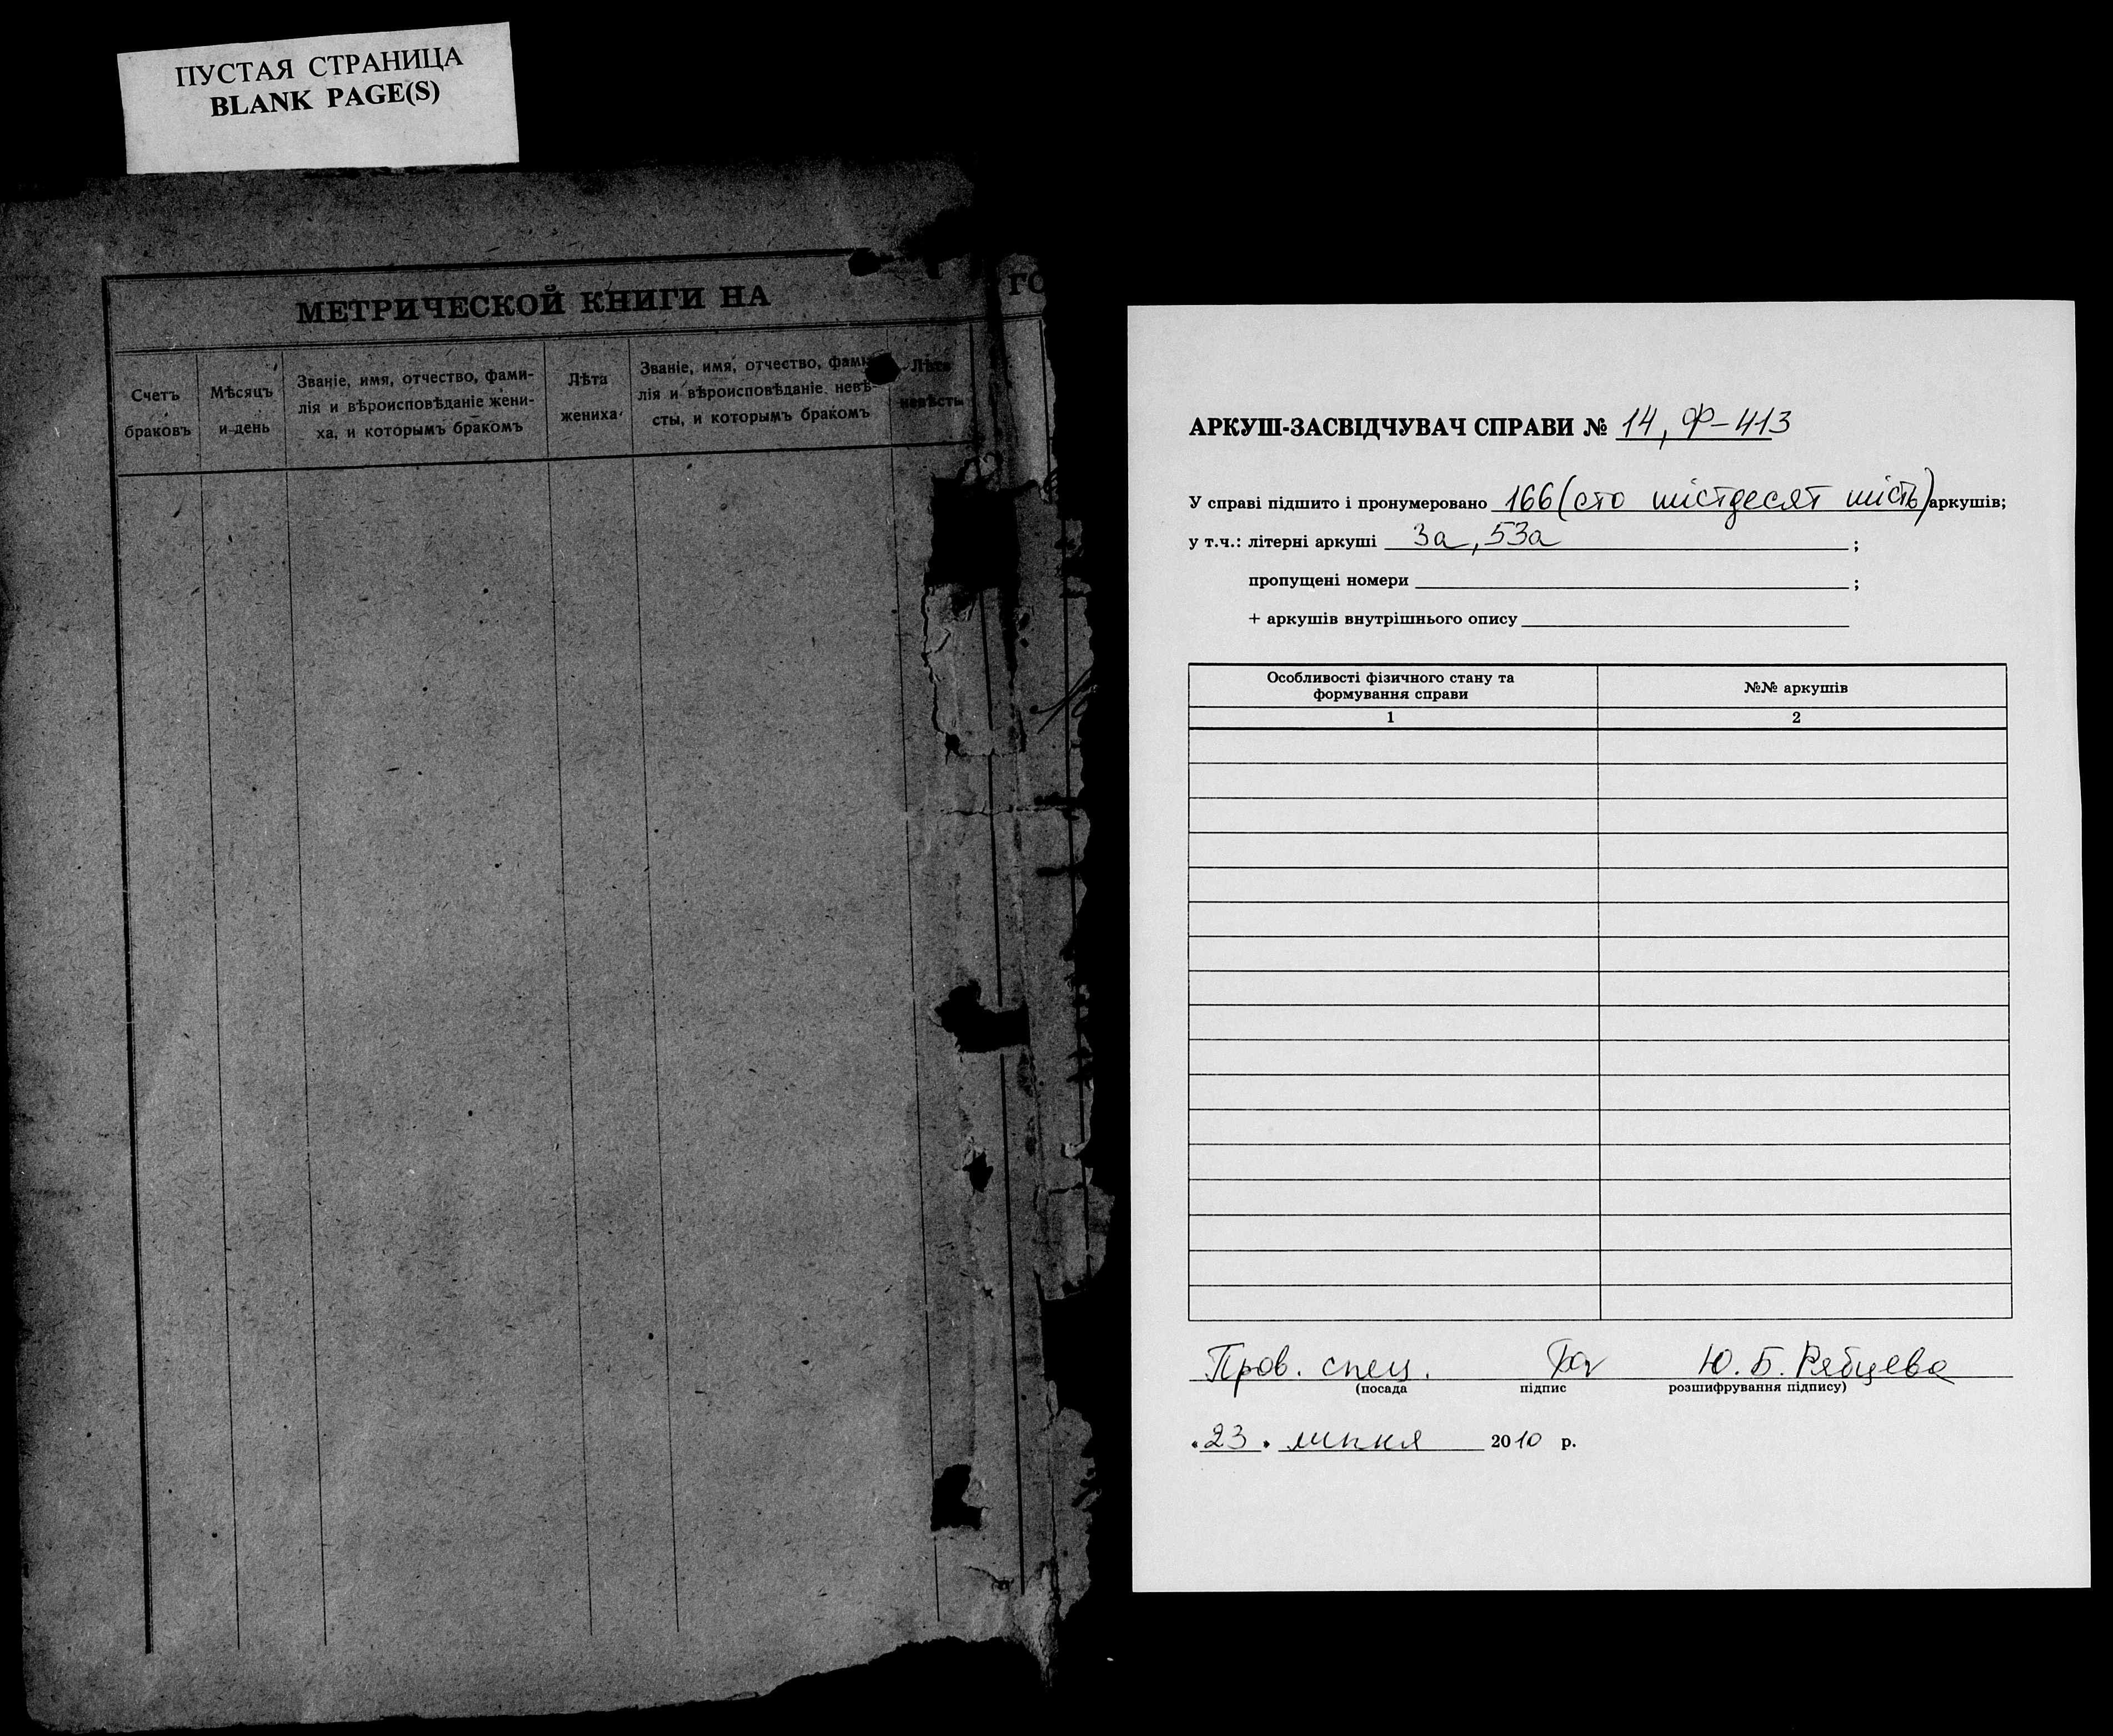 ПУСТАЯ СТРАНИЦА
BLANK PAGE(S)
МЕТРИЧЕСКОЙ КНИГИ НА
ГО
Счетъ
браковъ
Мѣсяцъ
и день
Званіе, имя, отчество, фами-
лія и вѣроисповѣданіе жени-
ха, и которымъ бракомъ
Лѣта
жениха
Званіе, имя, отчество, фами-
лія и вѣроисповѣданіе невѣ-
сты, и которымъ бракомъ
Лѣта
невѣсты
АРКУШ-ЗАСВІДЧУВАЧ СПРАВИ № 14, Ф-413
У справі підшито і пронумеровано 166 (сто шістдесят шість) аркушів;
у т.ч.: літерні аркуші 3а, 53а ;
пропущені номери ;
+ аркушів внутрішнього опису
Особливості фізичного стану та
формування справи
№№ аркушів
1 2
Пров. спец. Ю. Б. Рябцева
(посада підпис розшифрування підпису)
"23" липня 2010 р.